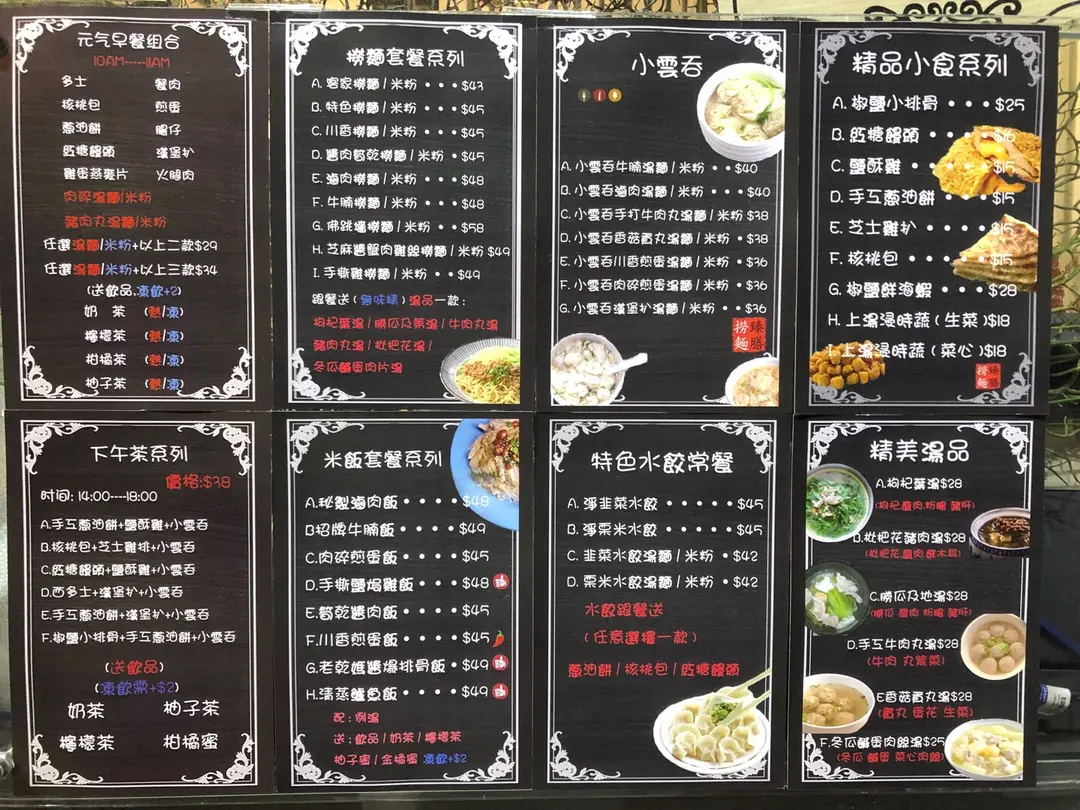 元气早餐组合
10AM-----11AM
多士 餐肉
核桃包 煎蛋
蔥油餅 腸仔
紅糖饅頭 漢堡扒
雞蛋燕麥片 火腿肉
肉碎湯麵/米粉
豬肉丸湯麵/米粉
任選湯麵/米粉+以上二款$29
任選湯麵/米粉+以上三款$34
(送飲品,凍飲+2)
奶 茶 (熱/凍)
檸檬茶 (熱/凍)
柑橘茶 (熱/凍)
柚子茶 (熱/凍)
撈麵套餐系列
A. 客家撈麵 / 米粉 • • • $43
B. 特色撈麵 / 米粉 • • • $45
C. 川香撈麵 / 米粉 • • • $45
D. 醬肉筍乾撈麵 / 米粉 • $45
E. 滷肉撈麵 / 米粉 • • • $48
F. 牛腩撈麵 / 米粉 • • • $48
G. 佛跳墻撈麵 / 米粉 • • $58
H. 芝麻醬蟹肉雞絲撈麵 / 米粉 $49
I. 手撕雞撈麵 / 米粉 • • $49
跟餐送 ( 無味精 ) 湯品一款 :
枸杞葉湯 / 勝瓜及第湯 / 牛肉丸湯
豬肉丸湯 / 枇杷花湯 /
冬瓜鹹蛋肉片湯
小雲吞
A. 小雲吞牛腩湯麵 / 米粉 • • $40
B. 小雲吞滷肉湯麵 / 米粉 • • $40
C. 小雲吞手打牛肉丸湯麵 / 米粉 $38
D. 小雲吞香菇貢丸湯麵 / 米粉 • $38
E. 小雲吞川香煎蛋湯麵 / 米粉 • $36
F. 小雲吞肉碎煎蛋湯麵 / 米粉 • $36
G. 小雲吞漢堡扒湯麵 / 米粉 • • $36
臻膳撈麵
精品小食系列
A. 椒鹽小排骨 • • • $25
B. 紅糖饅頭 • • • • $16
C. 鹽酥雞 • • • • • $15
D. 手工蔥油餅 • • • $15
E. 芝士雞扒 • • • • $15
F. 核桃包 • • • • • $15
G. 椒鹽鮮海蝦 • • • $28
H. 上湯浸時蔬 ( 生菜 ) $18
I. 上湯浸時蔬 ( 菜心 )$18
臻膳撈麵
下午茶系列
價格:$38
时间: 14:00----18:00
A.手工蔥油餅+鹽酥雞+小雲吞
B.核桃包+芝士雞排+小雲吞
C.紅糖饅頭+鹽酥雞+小雲吞
D.西多士+漢堡扒+小雲吞
E.手工蔥油餅+漢堡扒+小雲吞
F.椒鹽小排骨+手工蔥油餅+小雲吞
(送飲品)
(凍飲需+$2)
奶茶 柚子茶
檸檬茶 柑橘蜜
米飯套餐系列
A.秘製滷肉飯 • • • • $48
B招牌牛腩飯 • • • • $49
C.肉碎煎蛋飯 • • • • $45
D.手撕鹽焗雞飯 • • • $48
E.筍乾醬肉飯 • • • • $45
F.川香煎蛋飯 • • • • $45
G.老乾媽醬爆排骨飯 • $49
H.清蒸鱸魚飯 • • • • $49
配 : 例湯
送 : 飲品 / 奶茶 / 檸檬茶
柚子蜜 / 金橘蜜 凍飲+$2
特色水餃常餐
A. 淨韭菜水餃 • • • • $45
B. 淨粟米水餃 • • • • $45
C. 韭菜水餃湯麵 / 米粉 • $42
D. 粟米水餃湯麵 / 米粉 • $42
水餃跟餐送
( 任意選擇一款 )
蔥油餅 / 核桃包 / 紅糖饅頭
精美湯品
A.枸杞葉湯$28
(枸杞,瘦肉,粉腸 豬肝)
B.枇杷花豬肉湯$28
(枇杷花,瘦肉,鮮木耳)
C.勝瓜及地湯$28
(勝瓜 瘦肉 粉腸 豬肝)
D.手工牛肉丸湯$28
(牛肉 丸紫菜)
E香菇貢丸湯$28
(貢丸 蛋花 生菜)
F.冬瓜鹹蛋肉餅湯$25
(冬瓜 鹹蛋 菜心肉餅)